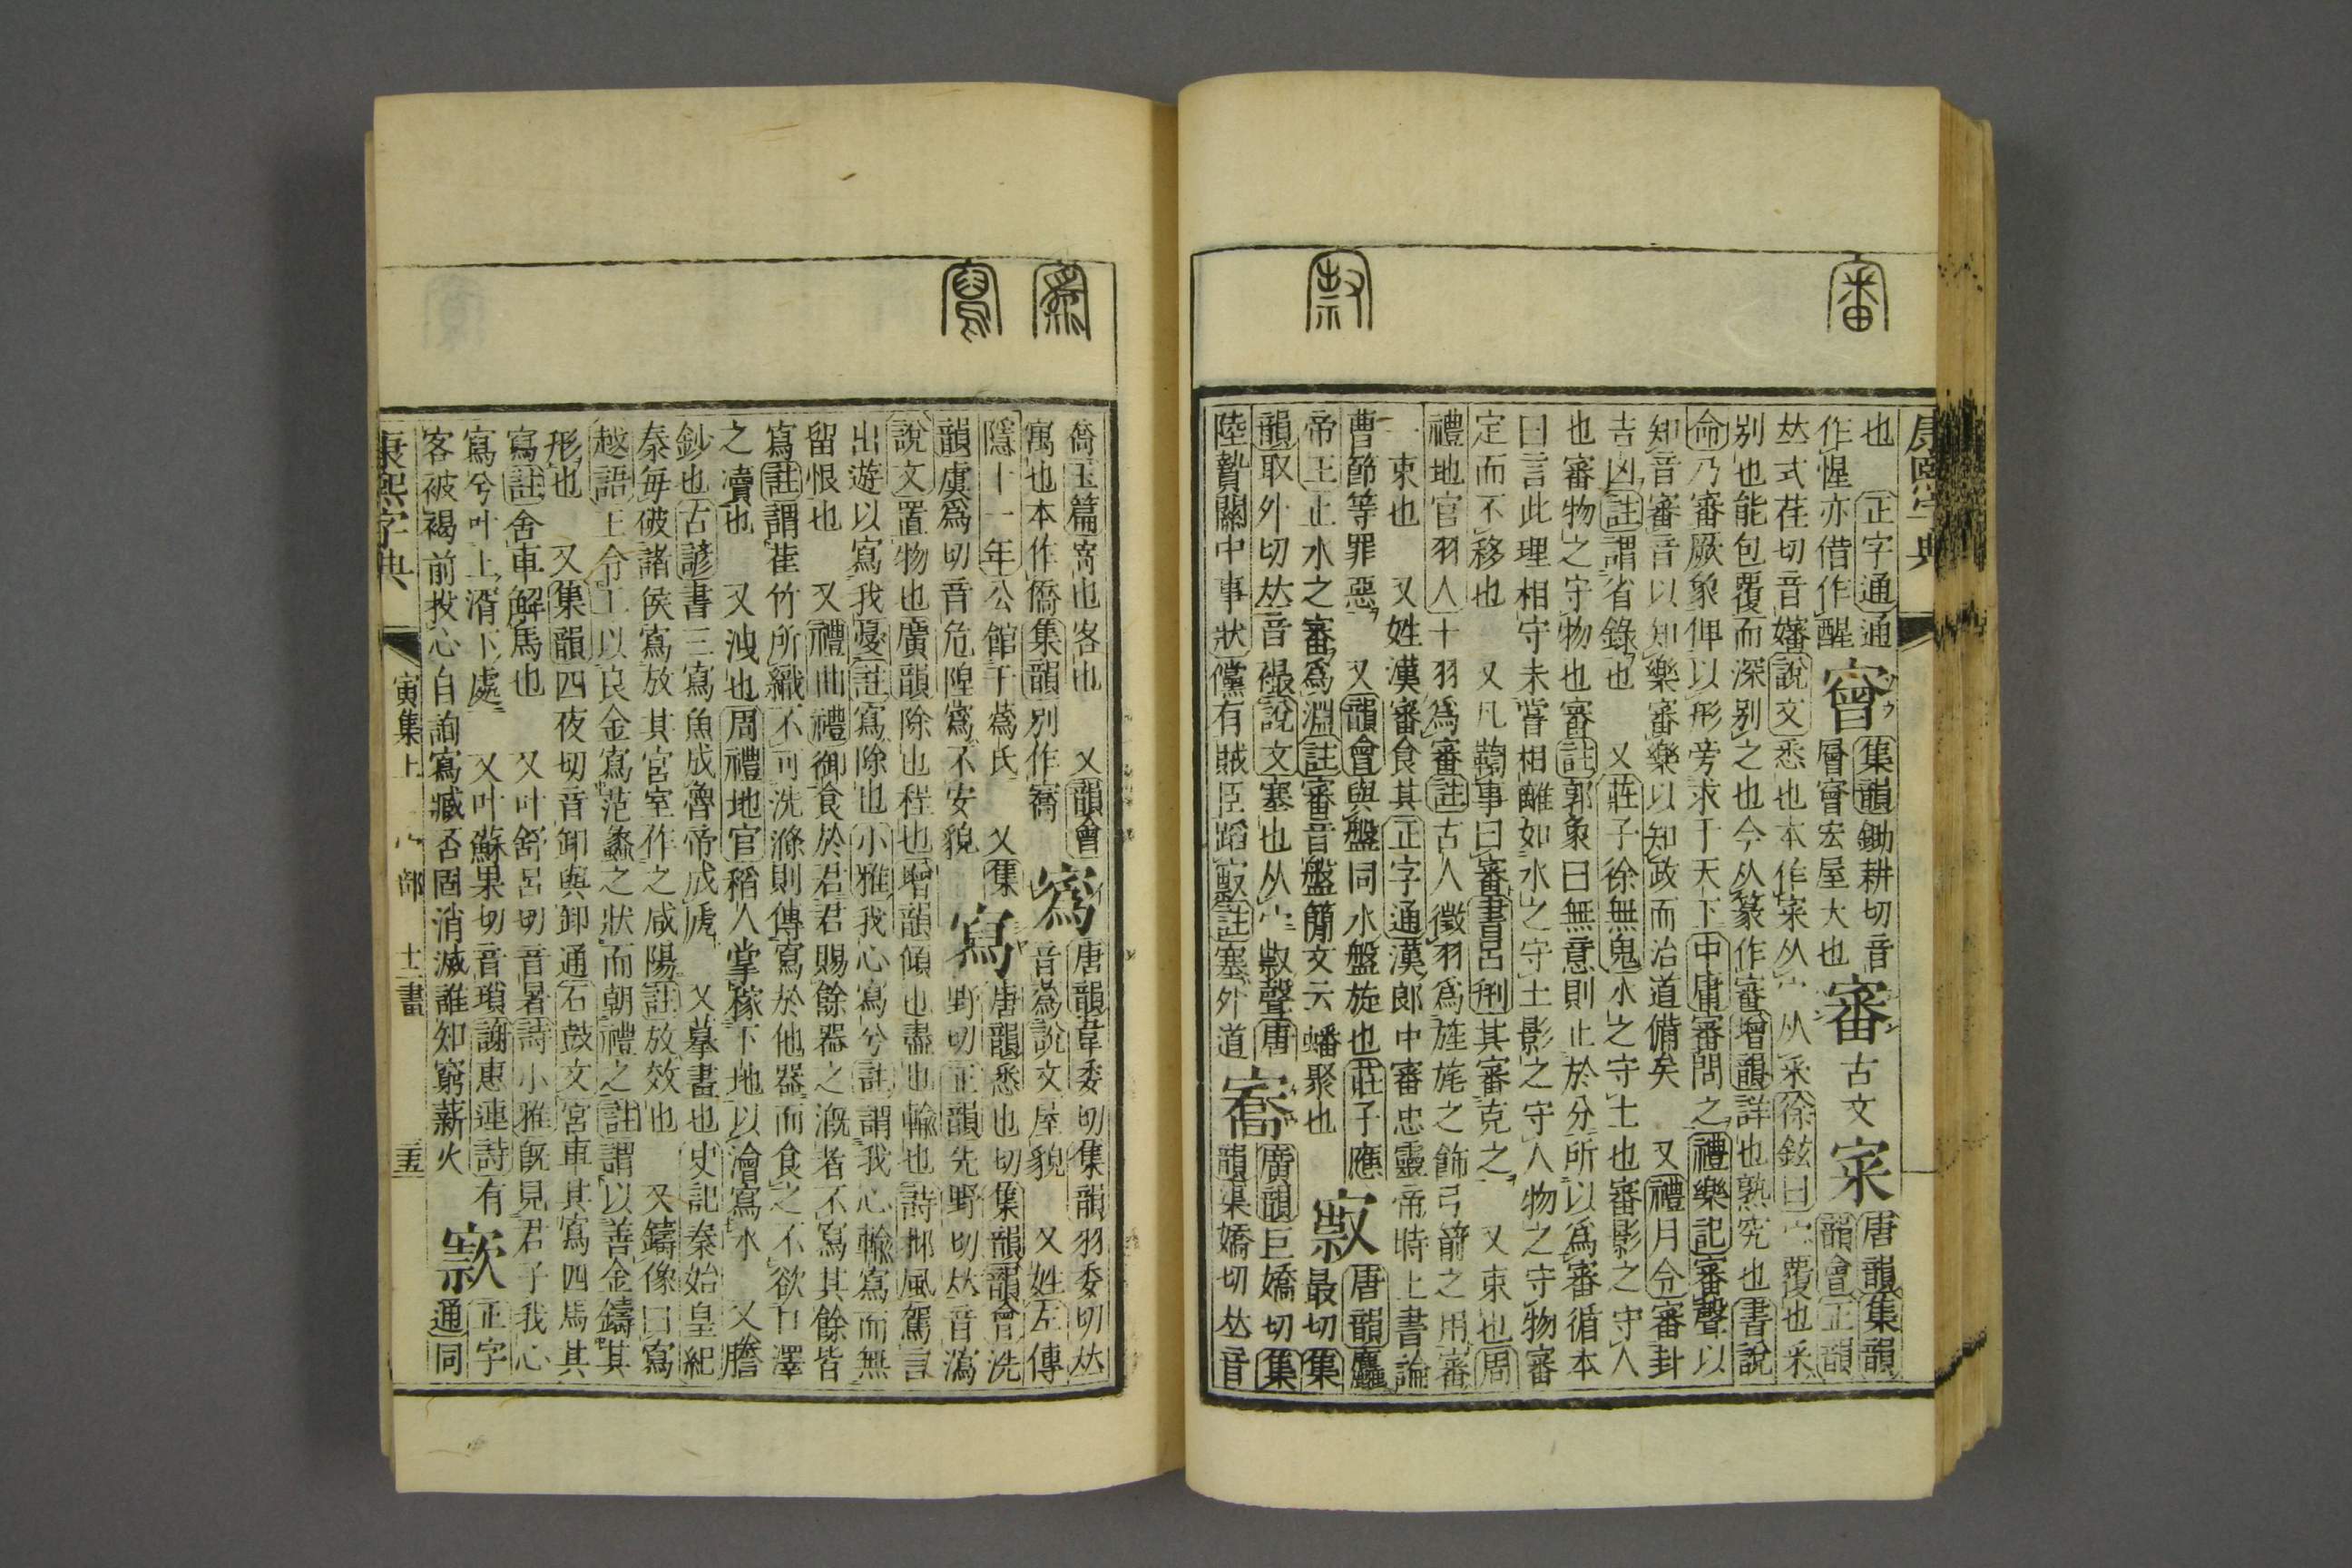 也 正字通通
作惺亦借作醒 㝝 集韻鋤耕切音
層㝝宏屋大也 審 古文 宷 唐韻集韻
韻會正韻
𠀤式荏切音嬸說文悉也本作宷从宀从釆徐鉉曰宀覆也釆
別也能包覆而深別之也今从篆作審增韻詳也熟究也書說
命乃審厥象俾以形旁求于天下中庸審問之禮樂記審聲以
知音審音以知樂審樂以知政而治道備矣 又禮月令審卦
吉凶註謂省錄也 又莊子徐無鬼水之守土也審影之守人
也審物之守物也審註郭象曰無意則止於分所以爲審循本
曰言此理相守未嘗相離如水之守土影之守人物之守物審
定而不移也 又凡鞫事曰審書呂刑其審克之 又束也周
禮地官羽人十羽爲審註古人徵羽爲旌旄之飾弓箭之用審
一束也 又姓漢審食其正字通漢郎中審忠靈帝時上書論
曹節等罪惡 又韻會與盤同水盤旋也莊子應
帝王止水之審爲淵註審音盤簡文云蟠聚也 㝮 唐韻麤
最切集
韻取外切𠀤音襊說文塞也从宀㕞聲唐
陸贄關中事狀儻有賊臣蹈㝮註塞外道 㝯 廣韻巨嬌切集
韻渠嬌切𠀤音
喬玉篇寄也客也 又韻會
寓也本作僑集韻別作㝯 寪 唐韻韋委切集韻羽委切𠀤
音蔿說文屋貌 又姓左傳
隱十一年公館于寪氏 又集
韻虞爲切音危隉寪不安貌 寫 唐韻悉也切集韻韻會洗
野切正韻先野切𠀤音瀉
說文置物也廣韻除也程也增韻傾也盡也輸也詩邶風駕言
出遊以寫我憂註寫除也小雅我心寫兮註謂我心輸寫而無
留恨也 又禮曲禮御食於君君賜餘器之溉者不寫其餘皆
寫註謂萑竹所織不可洗滌則傳寫於他器而食之不欲口澤
之瀆也 又洩也周禮地官稻人掌稼下地以澮寫水 又謄
鈔也古諺書三寫魚成魯帝成虎 又摹畫也史記秦始皇紀
秦每破諸侯寫放其宮室作之咸陽註放效也 又鑄像曰寫
越語王令工以良金寫范蠡之狀而朝禮之註謂以善金鑄其
形也 又集韻四夜切音卸與卸通石鼓文宮車其寫四馬其
寫註舍車解馬也 又叶舒呂切音暑詩小雅旣見君子我心
寫兮叶上湑下處 又叶蘇果切音瑣謝惠連詩有
客被褐前投心自詢寫臧否固消滅誰知窮薪火 𡪢 正字
通同
康熙字典 寅集上 宀部 十二畫